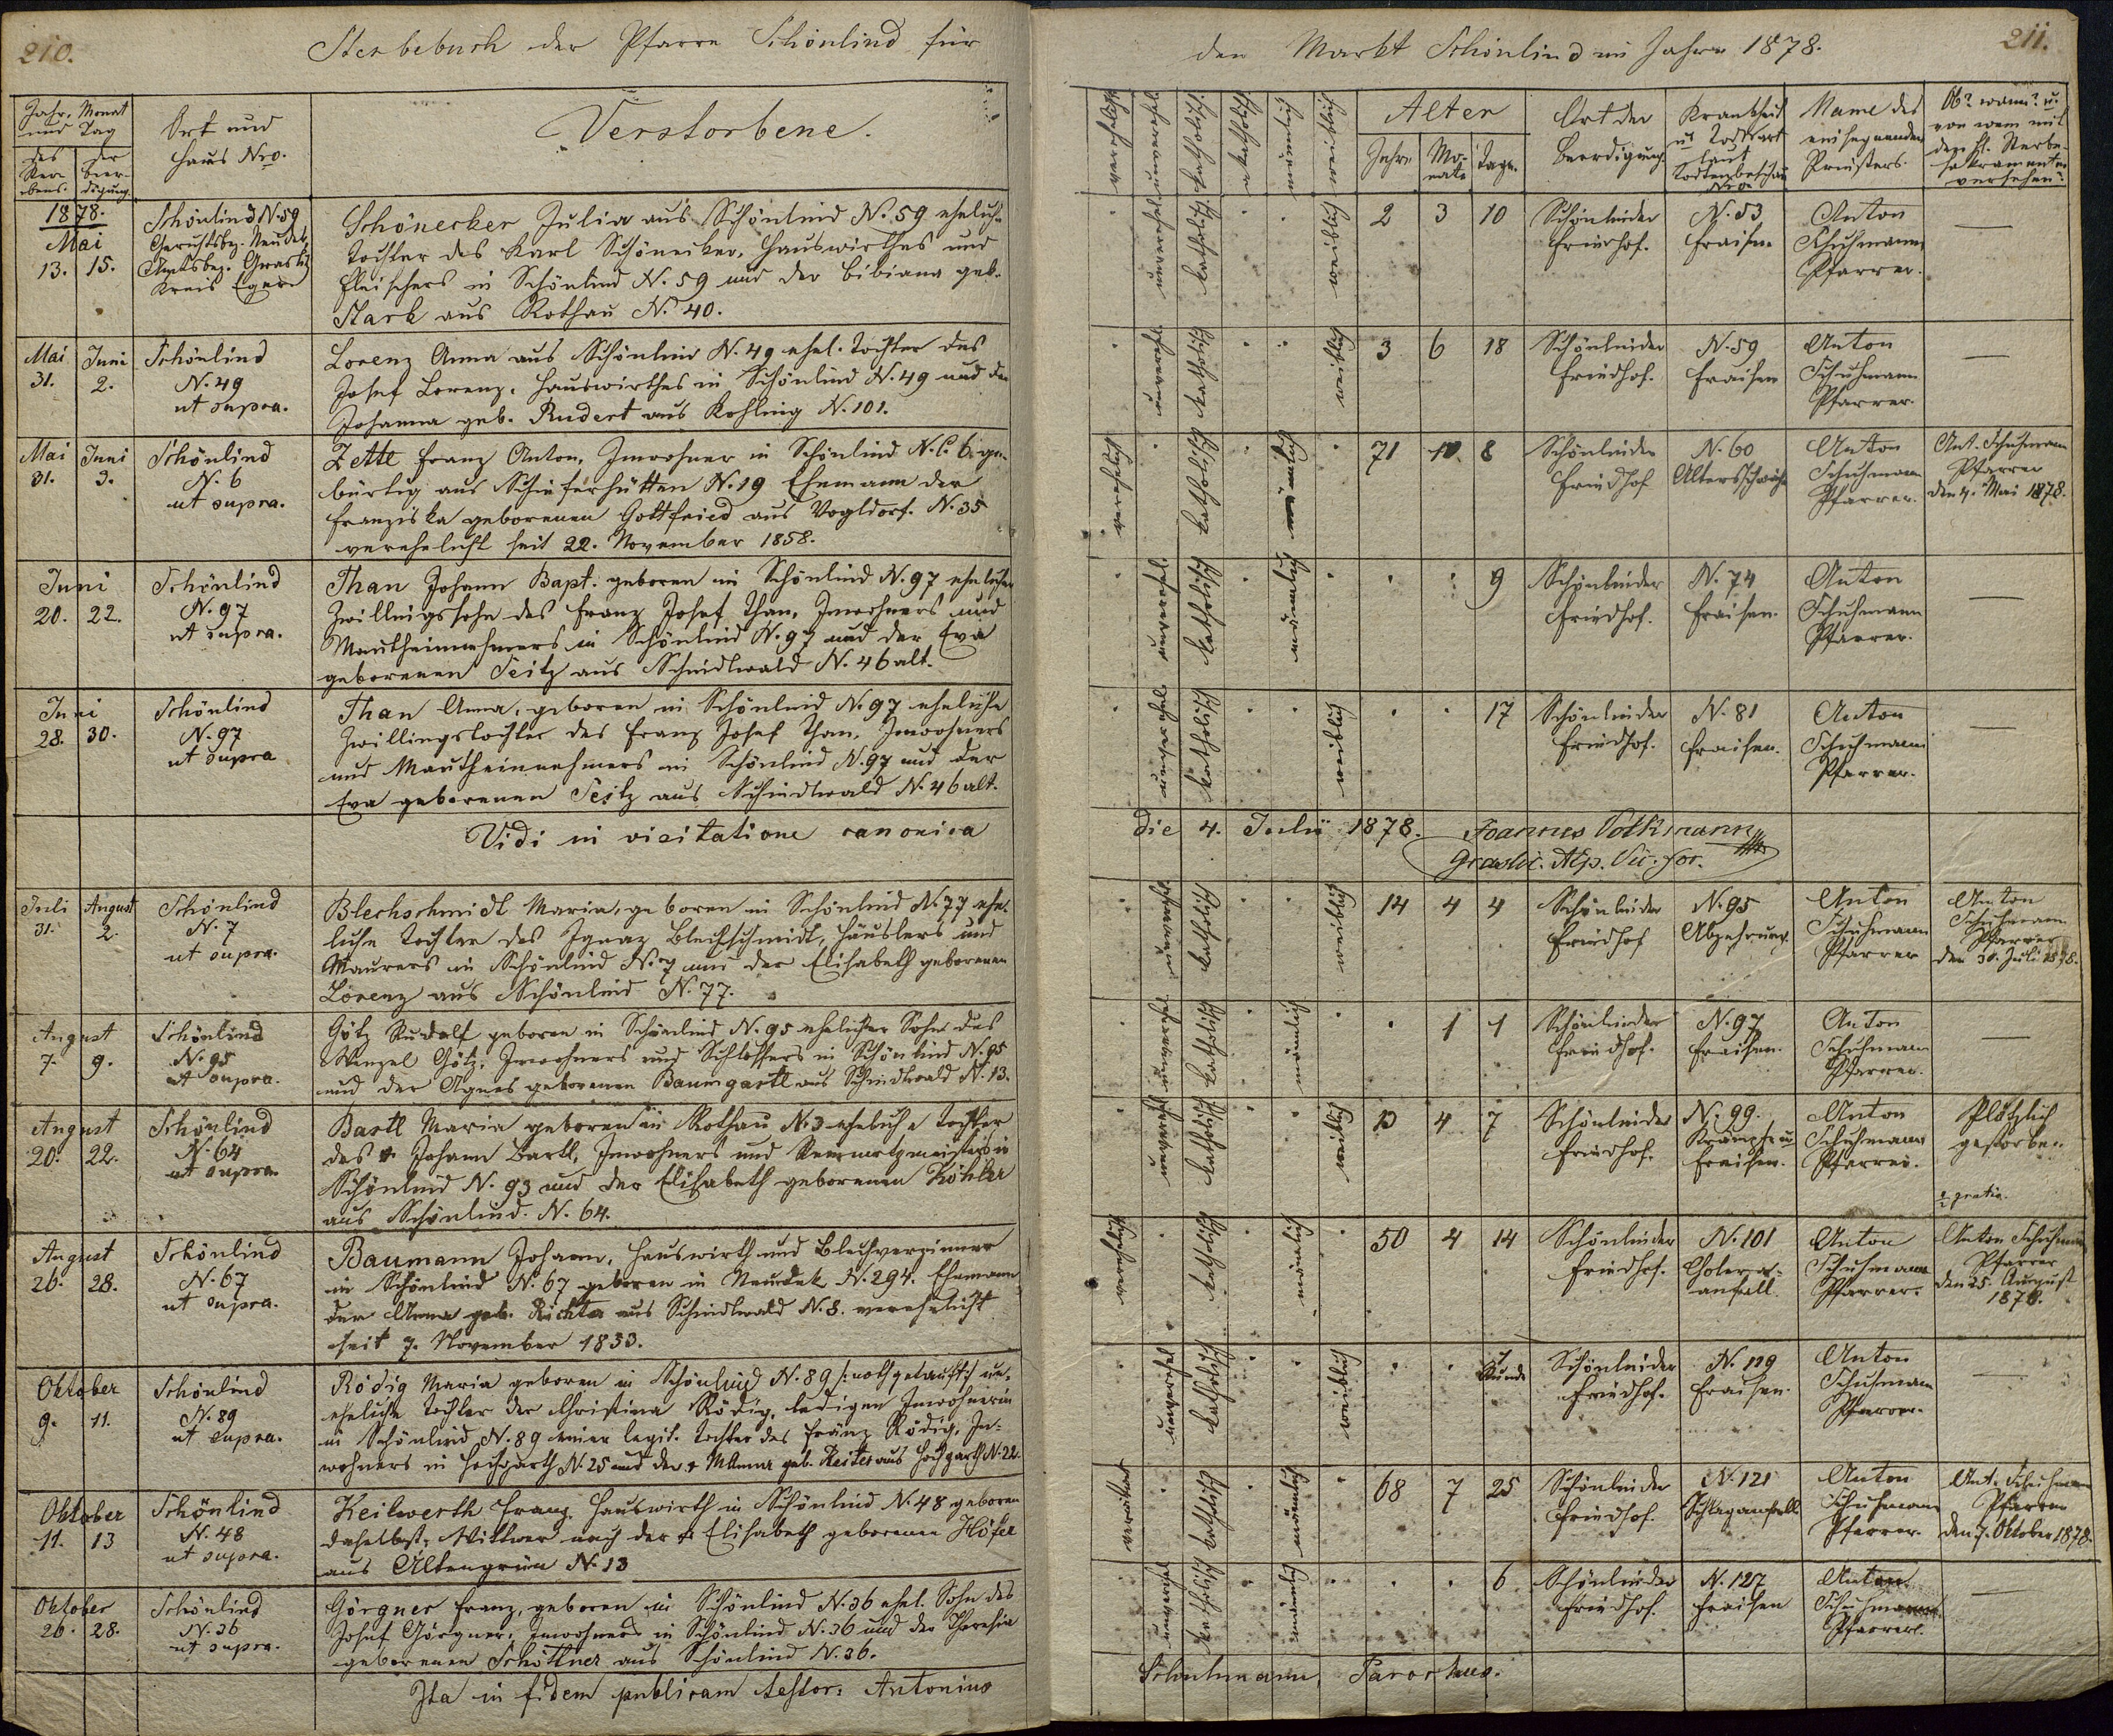 210.
Sterbebuch der Pfarre Schönlind für
Jahr, Monat und Tag
des Sterbens.
der Beerdigung.
Ort und Haus Nro.
Verstorbene.
1878.
Mai
13. 15.
Schönlind N. 59
Gerichtsbez. Neudek,
Amtsbez. Graslitz
Kreis Eger
Schönecker Julia aus Schönlind N. 59 eheliche
Tochter des Karl Schönecker, Hauswirthes und
Fleischers in Schönlind N. 59 und der Bibiana geb.
Stark aus Rothau N. 40.
Mai Juni
31. 2.
Schönlind
N. 49
ut supra.
Lorenz Anna aus Schönlind N. 49 ehel. Tochter des
Josef Lorenz, Hauswirthes in Schönlind N. 49 und der
Johanna geb. Rudert aus Kohling N. 101.
Mai Juni
31. 3.
Schönlind
N. 6
ut supra.
Zettl Franz Anton, Inwohner in Schönlind N. C. 6. ge-
bürtig aus Schieferhütten N. 19 Ehemann der
Franziska geborenen Gottfried aus Vogldorf. N. 35
verehelicht seit 22. November 1858.
Juni
20. 22.
Schönlind
N. 97
ut supra.
Than Johann Bapt. geboren in Schönlind N. 97 ehelicher
Zwillingssohn des Franz Josef Than, Inwohners und
Mautheinnehmers in Schönlind N. 97 und der Eva
geborenen Seitz aus Schindlwald N. 46 alt.
Juni
28. 30.
Schönlind
N. 97
ut supra
Than Anna, geboren in Schönlind N. 97 eheliche
Zwillingstochter des Franz Josef Than, Inwohners
und Mautheinnehmers in Schönlind N. 97 und der
Eva geborenen Seitz aus Schindlwald N. 46 alt.
Vidi in visitatione canonica
Juli August
31. 2.
Schönlind
N. 7
ut supra.
Blechschmidt Maria, geboren in Schönlind N. 77 ehe-
liche Tochter des Ignaz Blechschmidt, Häuslers und
Maurers in Schönlind N. 7 und der Elisabeth geborenen
Lorenz aus Schönlind N. 77.
August
7. 9.
Schönlind
N. 95
ut supra.
Götz Rudolf geboren in Schönlind N. 95 ehelicher Sohn des
Wenzel Götz, Inwohners und Schlossers in Schönlind N. 95
und der Agnes geborenen Baumgartl aus Schindlwald N. 13.
August
20. 22.
Schönlind
N. 64
ut supra.
Bartl Maria geboren in Rothau N. 3 eheliche Tochter
des † Johann Bartl, Inwohners und
Schönlind N. 93 und der Elisabeth geborenen Köhler
aus Schönlind. N. 64.
August
26. 28.
Schönlind
N. 67
ut supra.
Baumann Johann, Hauswirth und Blechverzinner
in Schönlind N. 67 geboren in Neudek N. 294. Ehemann
der Anna geb. Richter aus Schindlwald N. 8. verehelicht
seit 7. November 1833.
Oktober
9. 11.
Schönlind
N. 89
ut supra.
Rödig Maria geboren in Schönlind N. 89 /: nothgetauft :/ un-
eheliche Tochter der Christina Rödig, ledigen Inwohnerin
in Schönlind N. 89 einer legit. Tochter des Franz Rödig, In-
wohners in Hochgarth N. 25 und der † M. Anna geb. Reiter aus Hochgarth N. 22.
Oktober
11. 13
Schönlind
N. 48
ut supra.
Keilwerth Franz, Hauswirth in Schönlind N. 48 geboren
daselbst, Wittwer nach der † Elisabeth geborenen Höfer
aus Altengrün N. 13
Oktober
26. 28.
Schönlind
N. 36
ut supra.
Görgner Franz, geboren in Schönlind N. 36 ehel. Sohn des
Josef Görgner, Inwohners in Schönlind N. 36 und der Theresia
geborenen Schöttner aus Schönlind N. 36.
Ita in fidem publicam testor: Antonius
211.
den Markt Schönlind im Jahre 1878.
verehelicht
unverehel.
katholisch
akatholisch
männlich
weiblich
Alter
Jahre
Monate
Tage.
Ort der Beerdigung
Krankheit u Todesart laut Todtenbeschau Nro.
Name des einsegnenden Priesters.
Ob? wann? u. von wem mit den hl. Sterbesakramenten versehen?
unverehel. katholisch weiblich 2 3 10 Schönlinder Friedhof. N. 53 Fraisen. Anton Schuhmann Pfarrer. —
unverehel. katholisch weiblich 3 6 18 Schönlinder Friedhof. N. 59 Fraisen Anton Schuhmann Pfarrer. —
verehelicht katholisch männlich 71 10 8 Schönlinder Friedhof N. 60 Altersschwäche Anton Schuhmann Pfarrer. Ant. Schuhmann Pfarrer den 4. Mai 1878.
unverehel. katholisch männlich 9 Schönlinder Friedhof. N. 74 Fraisen. Anton Schuhmann Pfarrer. —
unverehel. katholisch weiblich 17 Schönlinder Friedhof. N. 81 Fraisen. Anton Schuhmann Pfarrer. —
die 4. Julii 1878. Joannes Volkmann
Graslic. Vic. for.
unverehel. katholisch weiblich 14 4 4 Schönlinder Friedhof N. 95 Abzehrung. Anton Schuhmann Pfarrer Anton Schuhmann Pfarrer den 30. Juli 1878.
unverehel. katholisch männlich 1 1 Schönlinder Friedhof. N. 97 Fraisen. Anton Schuhmann Pfarrer. —
unverehel. katholisch weiblich 13 4 7 Schönlinder Friedhof. N. 99. Krämpfe u Fraisen. Anton Schuhmann Pfarrer. Plötzlich gestorben.
gratis.
verehelicht katholisch männlich 50 4 14 Schönlinder Friedhof. N. 101 Cholera-anfall. Anton Schuhmann Pfarrer. Anton Schuhmann Pfarrer den 25. August 1878.
unverehel katholisch weiblich 1 Stunde Schönlinder Friedhof. N. 119 Fraisen. Anton Schuhmann Pfarrer. —
verwitwet katholisch männlich 68 7 25 Schönlinder Friedhof. N. 121 Schlaganfall Anton Schuhmann Pfarrer. Ant. Schuhmann Pfarrer den 7. Oktober 1878.
unverehel katholisch männlich 6 Schönlinder Friedhof. N. 127 Fraisen Anton Schuhmann Pfarrer. —
Schuhmann, Parochus.